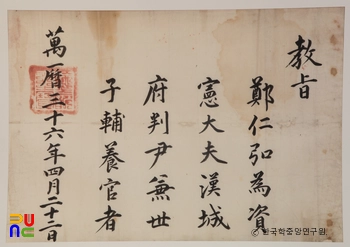 敎旨
鄭仁弘為資
憲大夫漢城
府判尹兼世
子輔養官者
萬曆三十六年四月二十二日
PUNC
© 한국학중앙연구원